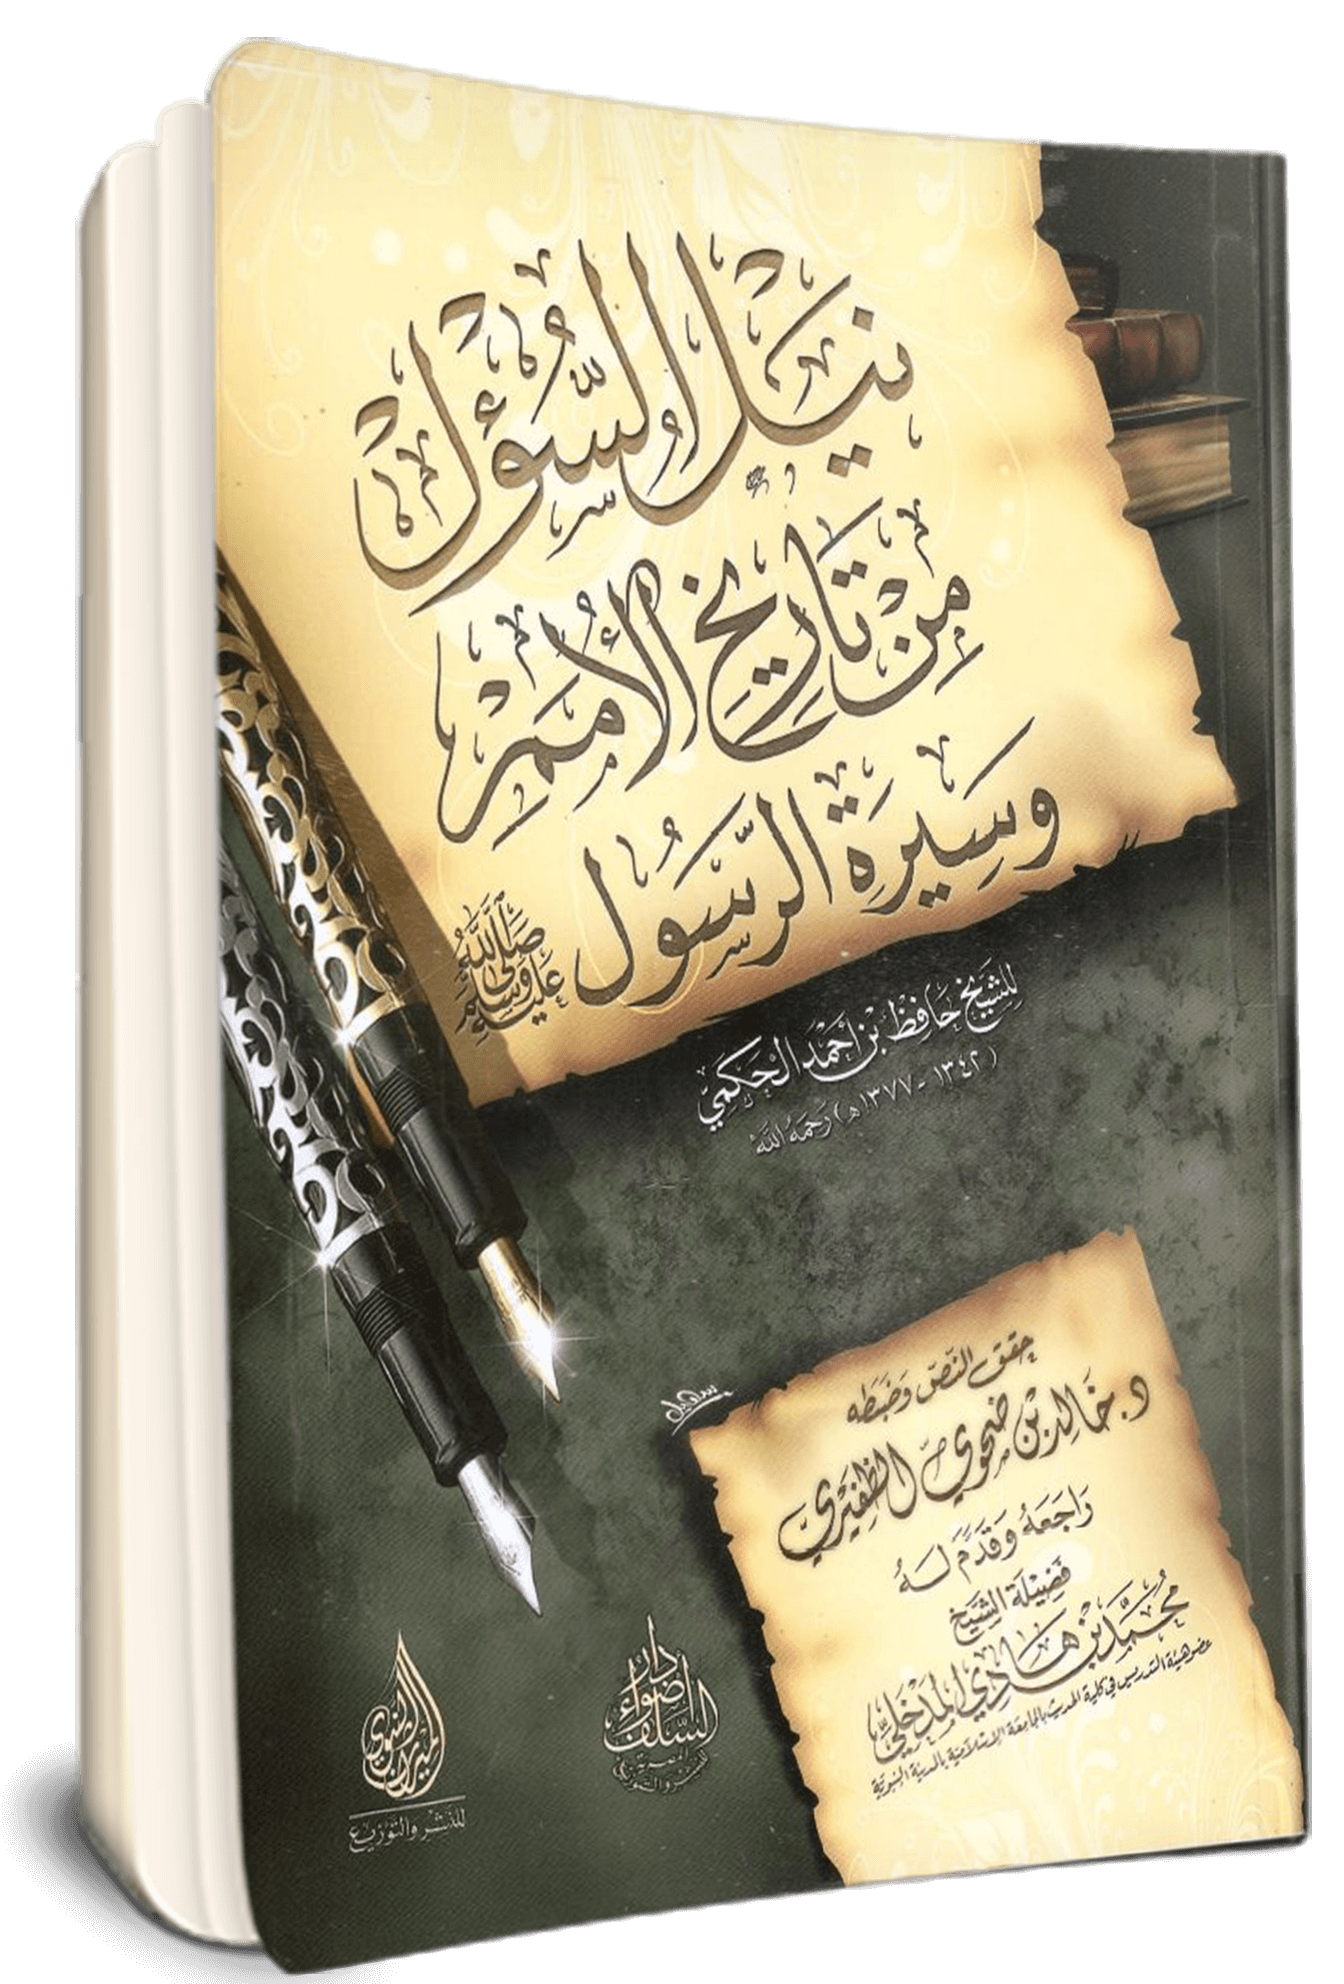 نَيْلُ السُّؤْلِ
مِنْ تَارِيخِ الْأُمَمِ
وَسِيرَةِ الرَّسُولِ صَلَّى اللَّهُ عَلَيْهِ وَسَلَّمَ
لِلشَّيْخِ حَافِظِ بْنِ أَحْمَدَ الْحَكَمِيِّ
(١٣٤٢ - ١٣٧٧هـ) رَحِمَهُ اللَّهُ
حقق النص وضبطه
د. خالد بن ضحوي الظفيري
راجعه وقدم له
فضيلة الشيخ
محمد بن هادي المدخلي
عضو هيئة التدريس في كلية الحديث بالجامعة الإسلامية بالمدينة النبوية
دار أضواء السلف
المصرية
للنشر والتوزيع
الميراث النبوي
للنشر والتوزيع